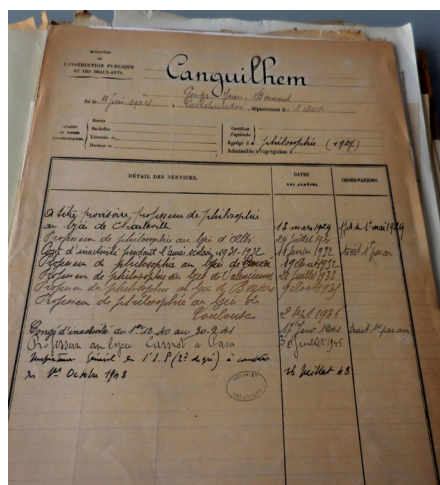 MINISTÈRE
DE
L'INSTRUCTION PUBLIQUE
ET DES BEAUX-ARTS.
Canguilhem
Georges Jean Bernard
Né le 4 Juin 1904 à Castelnaudary, département d l'Aude
GRADES
Brevet
Bachelier
Licencié ès
Docteur ès
Certificat
d'aptitude
Agrégé d philosophie (1927)
Admissible à l'agrégation d
DÉTAIL DES SERVICES.
DATES
DES ARRÊTÉS.
OBSERVATIONS.
à titre provisoire, professeur de philosophie
au lycée de Charleville 13 mars 1929
Professeur de philosophie au lycée d'Albi 29 juillet 1930
Congé d'inactivité pendant l'année scolaire 1931-1932 18 février 1932
Professeur de philosophie au lycée de 19 août 1932
Professeur de philosophie au lycée de Valenciennes 22 juillet 1933
Professeur de philosophie au lycée de Béziers 9 août 1935
Professeur de philosophie au lycée de
Toulouse 2 1936
Congé d'inactivité du 1er 12 40 au 30 9 41 17 Janv 1941 trait 1er par an
Professeur au lycée Carnot à Paris 30 juillet 1945
Inspecteur Général de l'I.P. (2e degré) à compter
du 1er Octobre 1948 26 Juillet 48